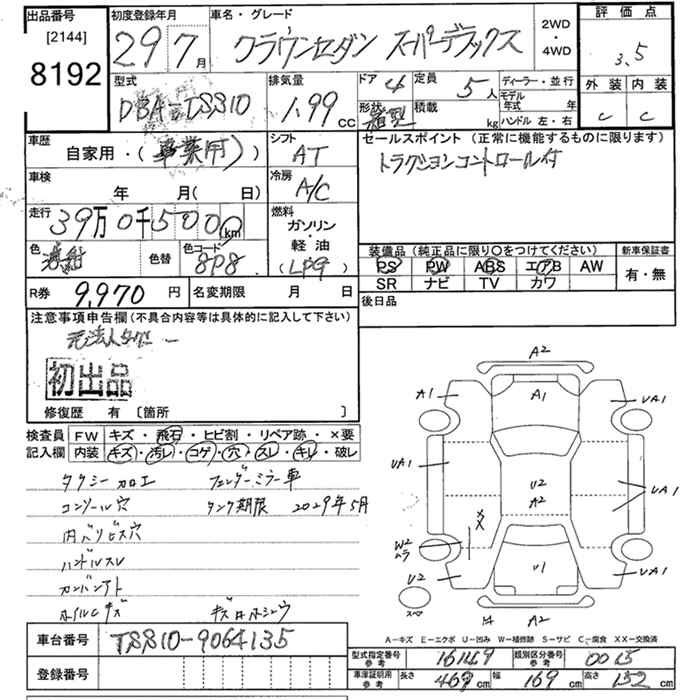 出品番号 [2144] 8192
初度登録年月 29年 7月
車名・グレード クラウンセダン スーパーデラックス
2WD・4WD
評価点 3.5
外装 C 内装 C
型式 DBA-TSS10
排気量 1.99 CC
ドア 4 定員 5人
形状 箱型 積載 kg
ディーラー・並行
モデル年式 年
ハンドル 左・右
車歴 自家用・(事業用)
シフト AT
セールスポイント (正常に機能するものに限ります)
トラクションコントロール付
車検 年 月(日)
冷房 A/C
走行 39万0千500km
燃料 ガソリン・軽油 (LPG)
色 濃紺 色替 色コード 8P8
装備品 (純正品に限り○をつけてください)
PS PW ABS エアB AW
SR ナビ TV カワ
新車保証書 有・無
R券 9,970円 名変期限 月 日
後日品
注意事項申告欄(不具合内容等は具体的に記入して下さい)
元法人タクシー
初出品
修復歴 有 〔箇所 〕
検査員記入欄
FW キズ・飛石・ヒビ割・リペア跡・×要
内装 キズ・汚レ・コゲ・穴・スレ・キレ・破レ
タクシー加工 フェンダーミラー車
コンソール穴 タンク期限 2029年5月
内バリビス穴
ハンドルスレ
カンバンアト
ホイルキズ
A2
A1 A1 UA1
UA1 U2 A2 UA1
XX
W2 ムラ
U2 U1 UA1
スペア A2
A-キズ E-エクボ U-凹み W-補修跡 S-サビ C-腐食 XX-交換済
車台番号 TSS10-9064135
登録番号
型式指定番号 参考 16149 類別区分番号 参考 0015
車庫証明用 参考 長さ 469cm 幅 169cm 高さ 152cm